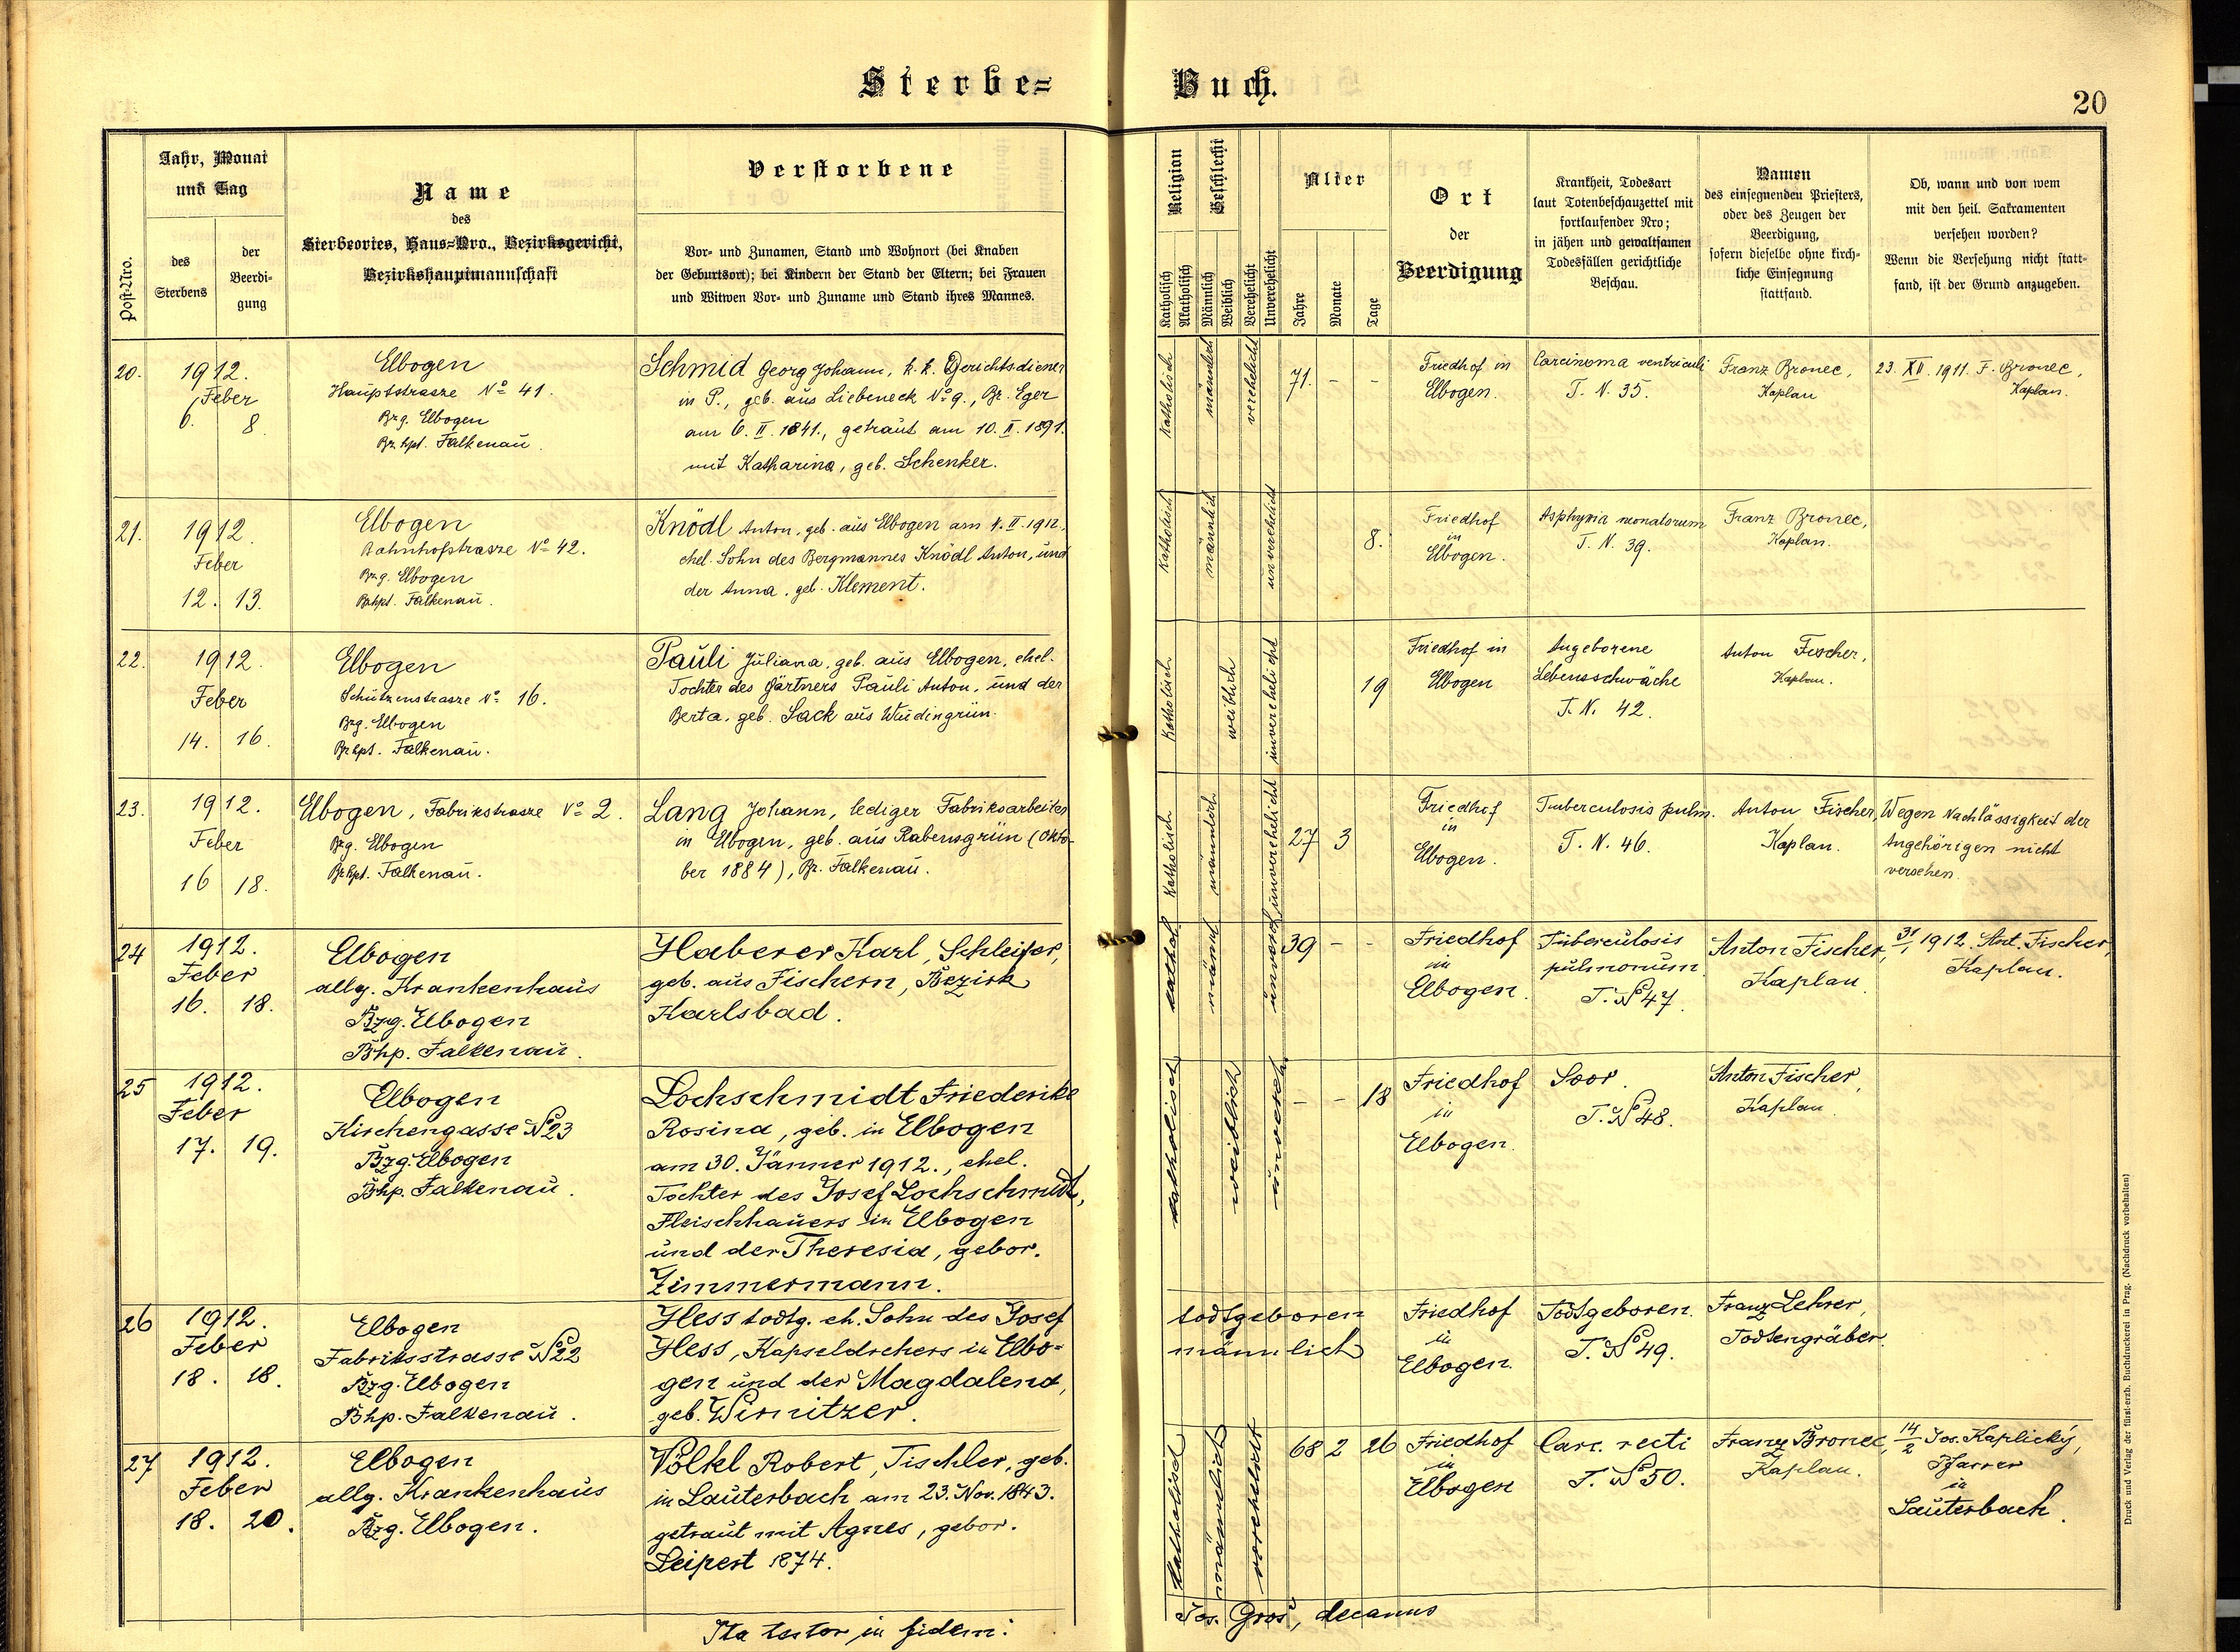 Sterbe= Buch.
20
Post-Nro.
Jahr, Monat
und Tag
des
Sterbens
der
Beerdi-
gung
Name
des
Sterbeortes, Haus-Nro., Bezirksgericht,
Bezirkshauptmannschaft
Verstorbene
Vor- und Zunamen, Stand und Wohnort (bei Knaben
der Geburtsort); bei Kindern der Stand der Eltern; bei Frauen
und Witwen Vor- und Zuname und Stand ihres Mannes.
Religion
Katholisch
Akatholisch
Geschlecht
Männlich
Weiblich
Verehelicht
Unverehelicht
Alter
Jahre
Monate
Tage
Ort
der
Beerdigung
Krankheit, Todesart
laut Totenbeschauzettel mit
fortlaufender Nro;
in jähen und gewaltsamen
Todesfällen gerichtliche
Beschau.
Namen
des einsegnenden Priesters,
oder des Zeugen der
Beerdigung,
sofern dieselbe ohne kirch-
liche Einsegnung
stattfand.
Ob, wann und von wem
mit den heil. Sakramenten
versehen worden?
Wenn die Versehung nicht statt-
fand, ist der Grund anzugeben.
20.
1912.
Feber
6. 8.
Elbogen
Hauptstrasze No 41.
Bzg. Elbogen
Bz. hpt. Falkenau.
Schmid Georg Johann, k. k. Gerichtsdiener
in P., geb. aus Liebeneck No 9., Bz. Eger
am 6. II. 1841., getraut am 10. II. 1891.
mit Katharina, geb. Schenker.
Katholisch
männlich
verehelicht
71. - -
Friedhof in
Elbogen.
Carcinoma ventriculi
T. N. 35.
Franz Bronec,
Kaplan
23. XII. 1911. F. Bronec,
Kaplan.
21.
1912.
Feber
12. 13.
Elbogen
Bahnhofstrasze No 42.
Bzg. Elbogen
Bzhpt. Falkenau.
Knödl Anton, geb. aus Elbogen am 4. II. 1912,
ehel. Sohn des Bergmannes Knödl Anton, und
der Anna, geb. Klement.
Katholisch
männlich
unverehelicht
8.
Friedhof
in
Elbogen.
Asphyxia neonatorum
T. N. 39.
Franz Bronec,
Kaplan.
22.
1912.
Feber
14. 16.
Elbogen
Schützenstrasze No 16.
Bzg. Elbogen
Bzhpt. Falkenau.
Pauli Juliana, geb. aus Elbogen, ehel.
Tochter des Gärtners Pauli Anton, und der
Berta, geb. Sack aus Wudingrün.
Katholisch
weiblich
unverehelicht
19
Friedhof in
Elbogen
Angeborene
Lebensschwäche
T. N. 42.
Anton Fischer,
Kaplan.
23.
1912.
Feber
16 18.
Elbogen, Fabrikstrasze No 2.
Bzg. Elbogen
Bzhpt. Falkenau.
Lang Johann, lediger Fabriksarbeiter
in Elbogen, geb. aus Rabensgrün (Okto-
ber 1884), Bz. Falkenau.
Katholisch
männlich
unverehelicht
27 3
Friedhof
in
Elbogen.
Tuberculosis pulm.
T. N. 46.
Anton Fischer
Kaplan.
Wegen Nachlässigkeit der
Angehörigen nicht
versehen.
24
1912.
Feber
16. 18.
Elbogen
allg. Krankenhaus
Bzg. Elbogen
Bhp. Falkenau.
Haberer Karl, Schleifer,
geb. aus Fischern, Bezirk
Karlsbad.
kathol.
männl
unverehel
39 - -
Friedhof
in
Elbogen.
Tuberculosis
pulmonum
T. No 47.
Anton Fischer,
Kaplan
31/1 1912. Ant. Fischer,
Kaplan.
25
1912.
Feber
17. 19.
Elbogen
Kirchengasse No 23
Bzg. Elbogen
Bhp. Falkenau.
Lochschmidt Friederike
Rosina, geb. in Elbogen
am 30. Jänner 1912., ehel.
Tochter des Josef Lochschmidt,
Fleischhauers in Elbogen
und der Theresia, gebor.
Zimmermann.
katholisch
weiblich
unvereh.
- - 18
Friedhof
in
Elbogen.
Soor.
T. No 48.
Anton Fischer,
Kaplan
26
1912.
Feber
18. 18.
Elbogen
Fabriksstrasse No 22
Bzg. Elbogen
Bhp. Falkenau.
Hess todtg. eh. Sohn des Josef
Hess, Kapseldrehers in Elbo=
gen und der Magdalena,
geb. Wirnitzer.
todtgeboren
männlich
Friedhof
in
Elbogen.
Todtgeboren.
T. No 49.
Franz Lehrer,
Todtengräber.
27
1912.
Feber
18. 20.
Elbogen
allg. Krankenhaus
Bzg. Elbogen.
Völkl Robert, Tischler, geb.
in Lauterbach am 23. Nov. 1843.
getraut mit Agnes, gebor.
Leipert 1874.
katholisch
männlich
verehelicht
68 2 26
Friedhof
in
Elbogen
Carc. recti
T. No 50.
Franz Bronec,
Kaplan.
14/2 Jos. Kaplický,
Pfarrer
in
Lauterbach.
Ita testor in fidem: Jos. Gros, decanus
Druck und Verlag der fürst-erzb. Buchdruckerei in Prag. (Nachdruck vorbehalten)